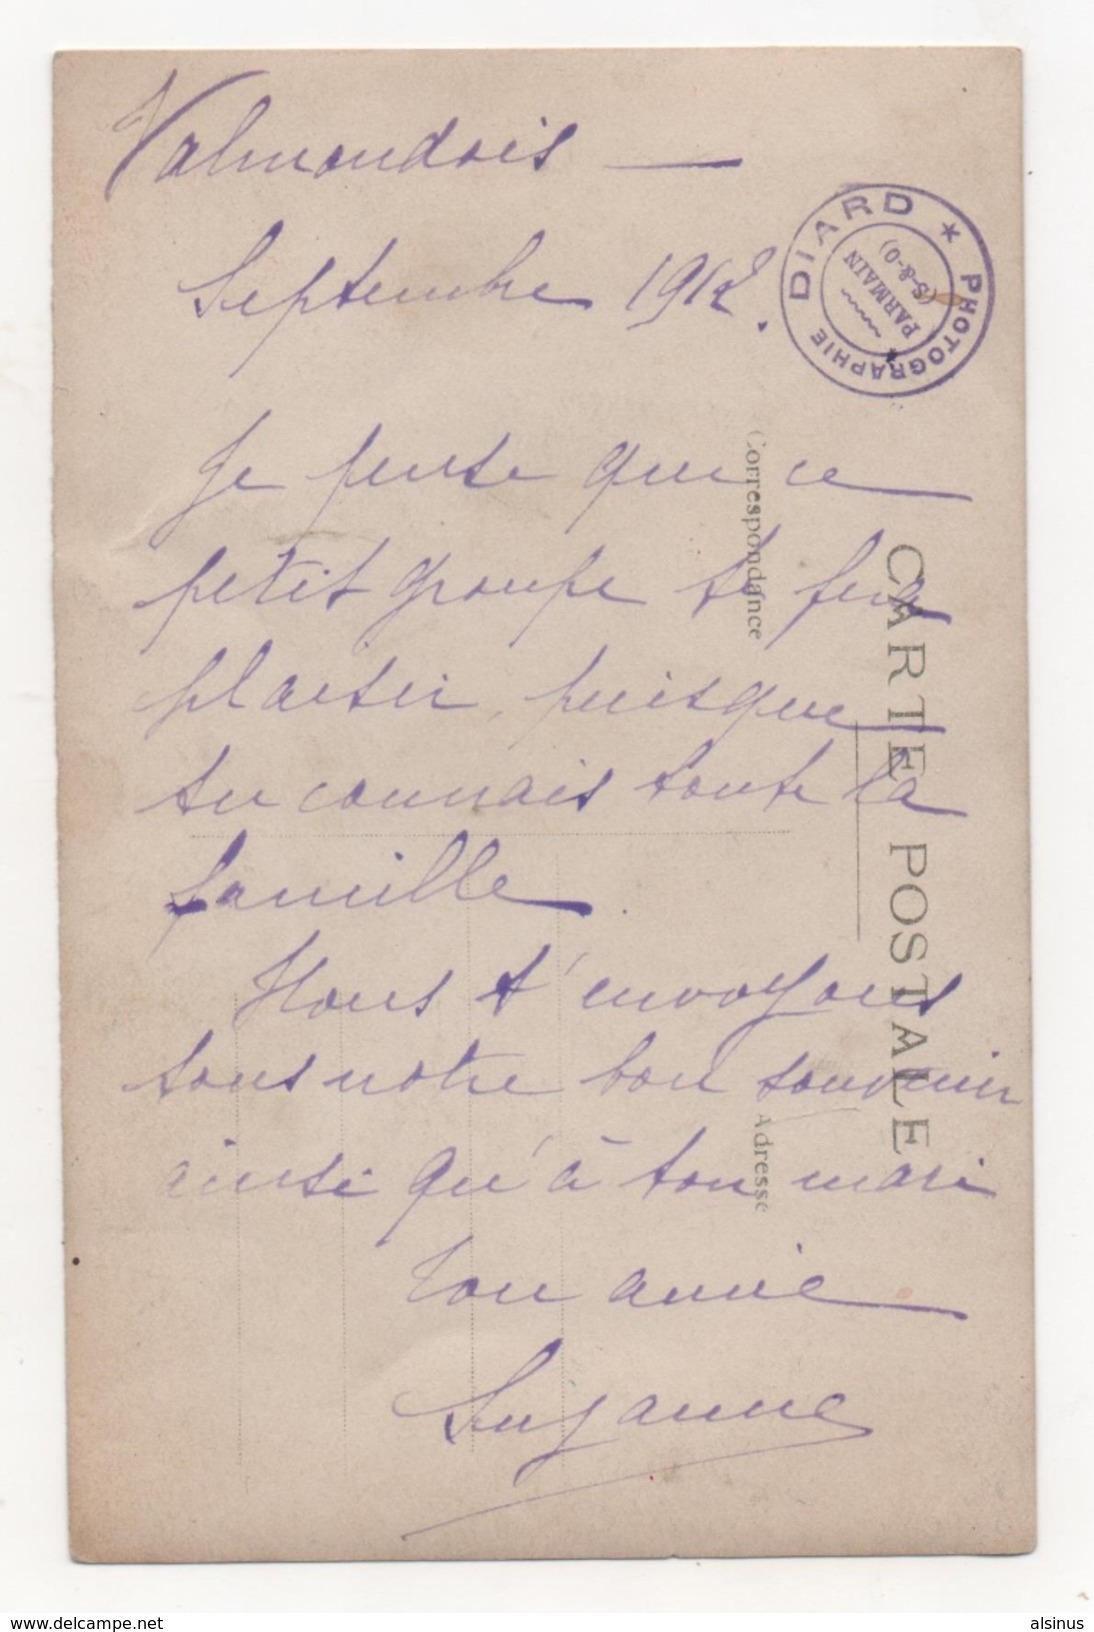 Valmondois —
Septembre 1912.
PHOTOGRAPHIE DIARD *
PARMAIN
(S-&-O)
Je pense que ce
petit groupe te fera
plaisir, puisque
tu connais toute la
famille
Nous t'envoyons
tous notre bon souvenir
ainsi qu'à ton mari
Ton amie
Suzanne
CARTE POSTALE
Correspondance
Adresse
delcampe.net
alsinus